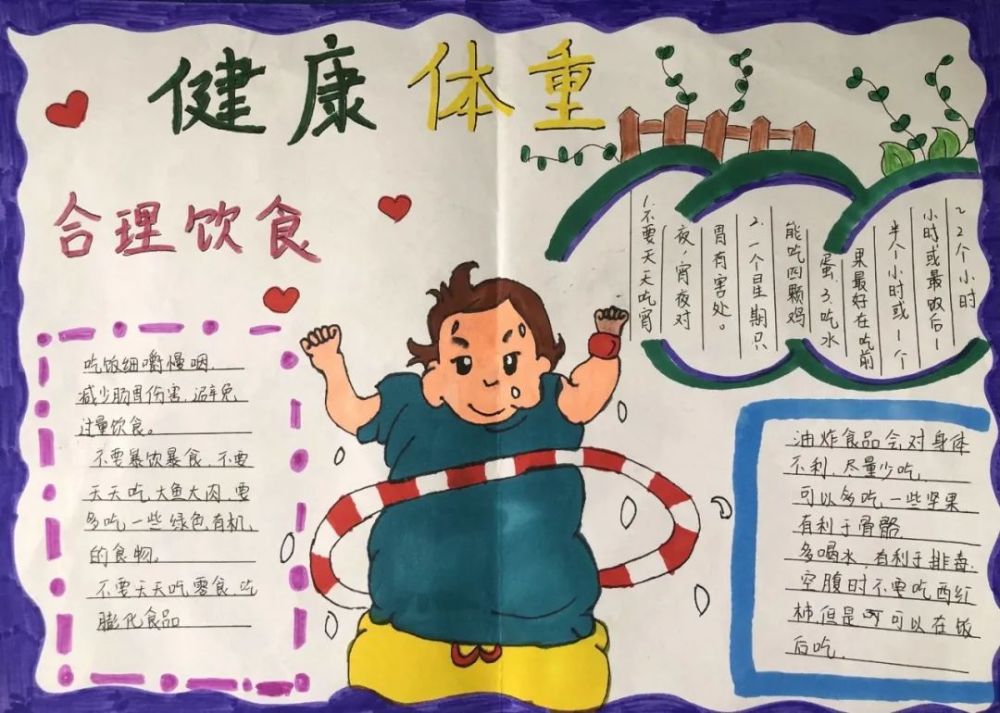 健康体重
合理饮食
吃饭细嚼慢咽.
减少肠胃伤害,避免
过量饮食。
不要暴饮暴食,不要
天天吃大鱼大肉,要
多吃一些绿色,有机
的食物。
不要天天吃零食,吃
膨化食品
1.不要天天吃宵
夜,宵夜对
胃有害处。
2.一个星期只
能吃四颗鸡
蛋.3.吃水
果最好在吃前
半个小时或1个
小时或最后1
~2个小时
油炸食品会对身体
不利,尽量少吃,
可以多吃一些坚果
有利于骨骼
多喝水,有利于排毒,
空腹时不要吃西红
柿,但是可以在饭
后吃.